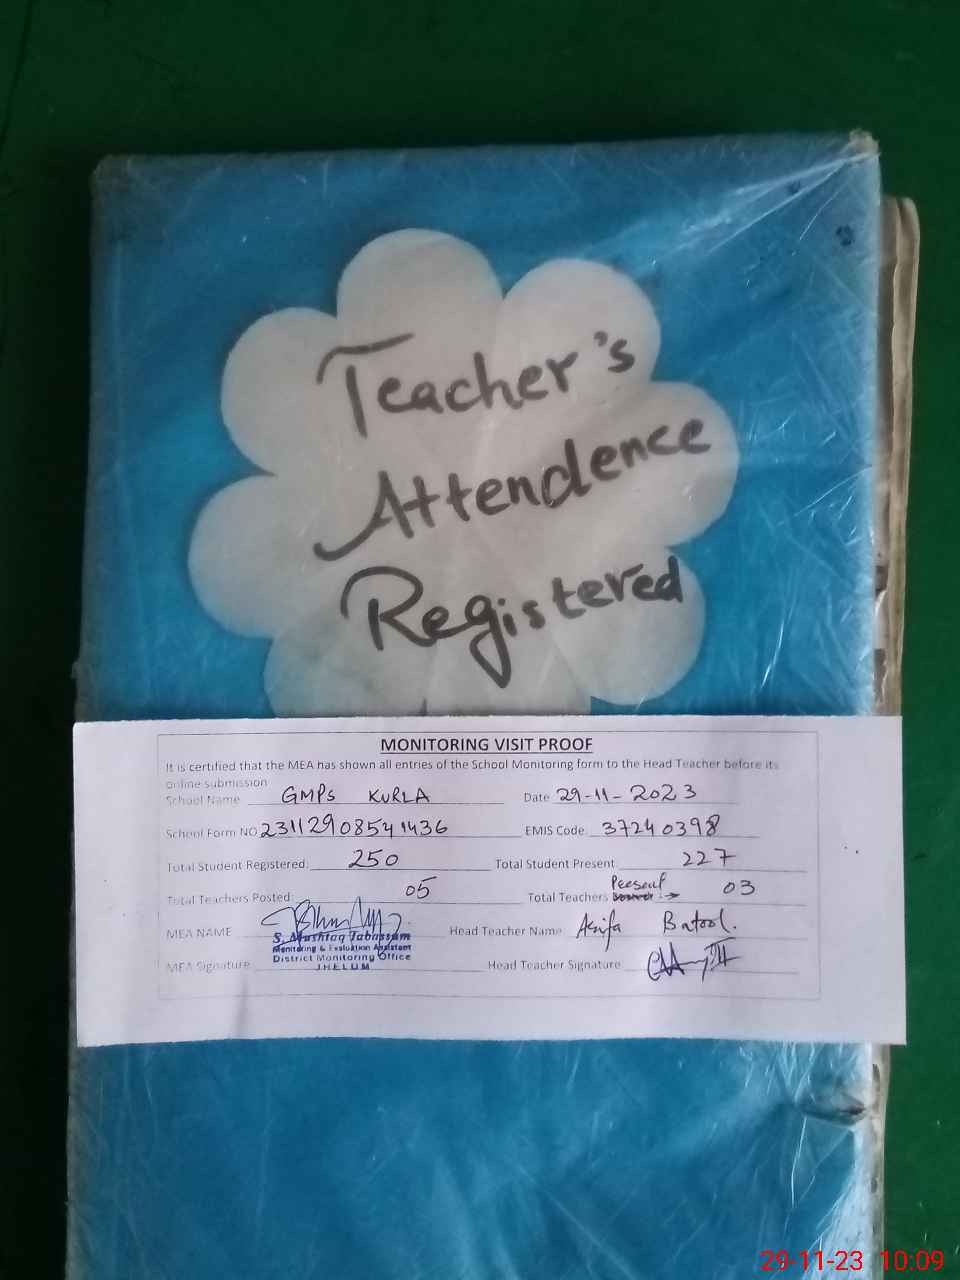 Teacher's
Attendence
Registered
MONITORING VISIT PROOF
It is certified that the MEA has shown all entries of the School Monitoring form to the Head Teacher before its
online submission
School Name GMPS KURLA Date 29-11-2023
School Form NO 23112908541436 EMIS Code. 37240398
Total Student Registered: 250 Total Student Present: 227
Total Teachers Posted: 05 Total Teachers Present 03
MEA NAME S. Mushtaq Tabassum Head Teacher Name Asifa Batool.
Monitoring & Evaluation Assistant
District Monitoring Office
MEA Signature JHELUM Head Teacher Signature
29-11-23 10:09